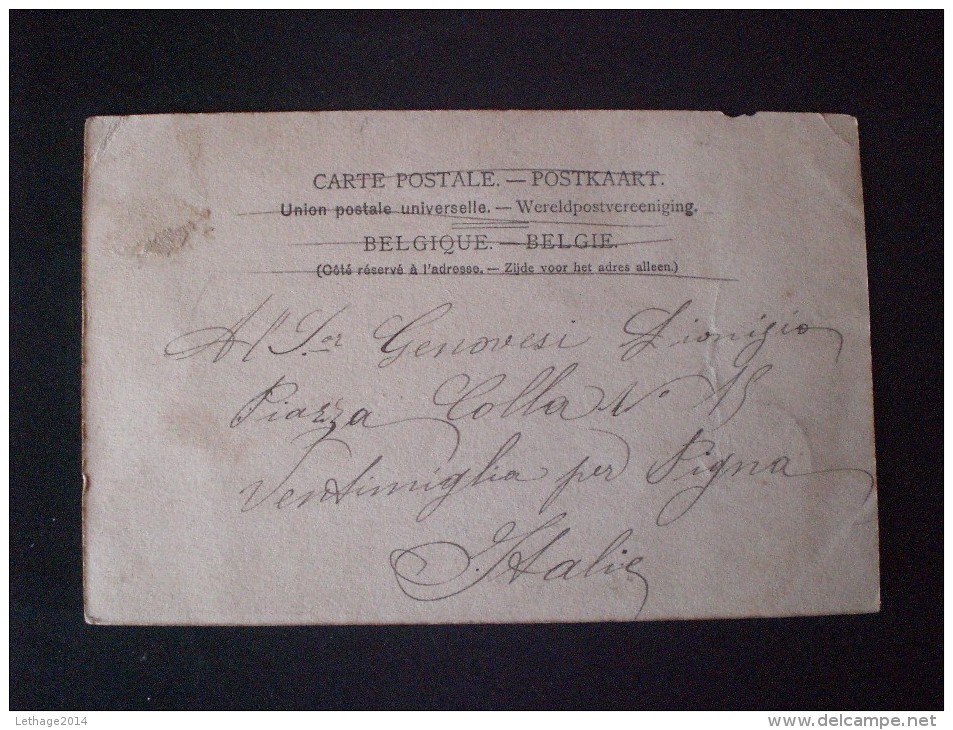 CARTE POSTALE. — POSTKAART.
Union postale universelle. — Wereldpostvereeniging.
BELGIQUE. — BELGIE.
(Côté réservé à l'adresse. — Zijde voor het adres alleen.)
Al Sor Genovesi Dionigio
Piazza Colla No 15
Ventimiglia per Pigna
Italie
Lethage2014
www.delcampe.net